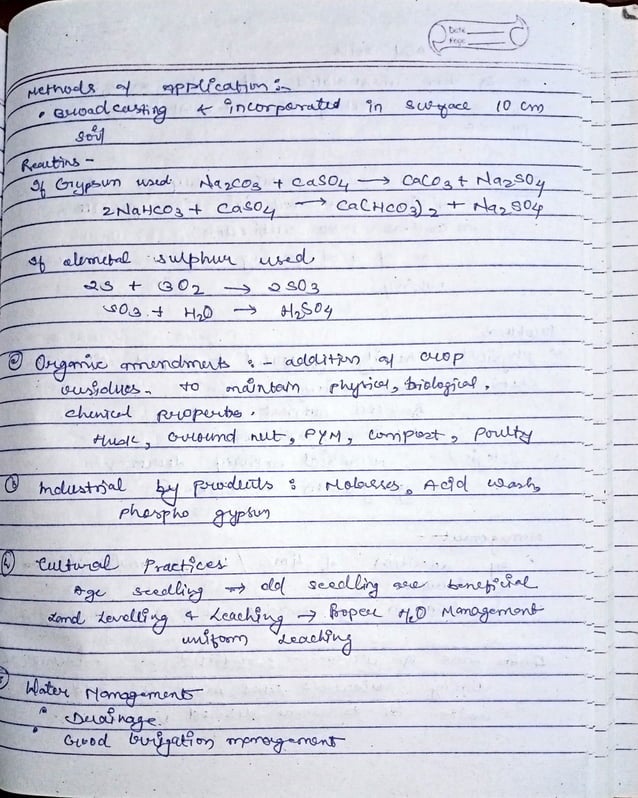 Date
Page
Methods of application :-
• Broadcasting & incorporated in surface 10 cm
soil
Reactins -
If Gypsum used, Na2CO3 + CaSO4 → CaCO3 + Na2SO4
2NaHCO3 + CaSO4 → Ca(HCO3)2 + Na2SO4
If elemetal sulphur used
2S + 3O2 → 2SO3
SO3 + H2O → H2SO4
Organic amendments :- addition of crop
residues - to maintain physical, biological,
chemical properties.
Husk, Ground nut, FYM, compost, Poultry
Industrial by products : Molasses, Acid wash,
phospho gypsum
Cultural Practices
Age seedling → old seedling are beneficial
Land Levelling & Leaching → Proper H2O Management
uniform Leaching
Water Managements
• Drainage
• Good Irrigation management